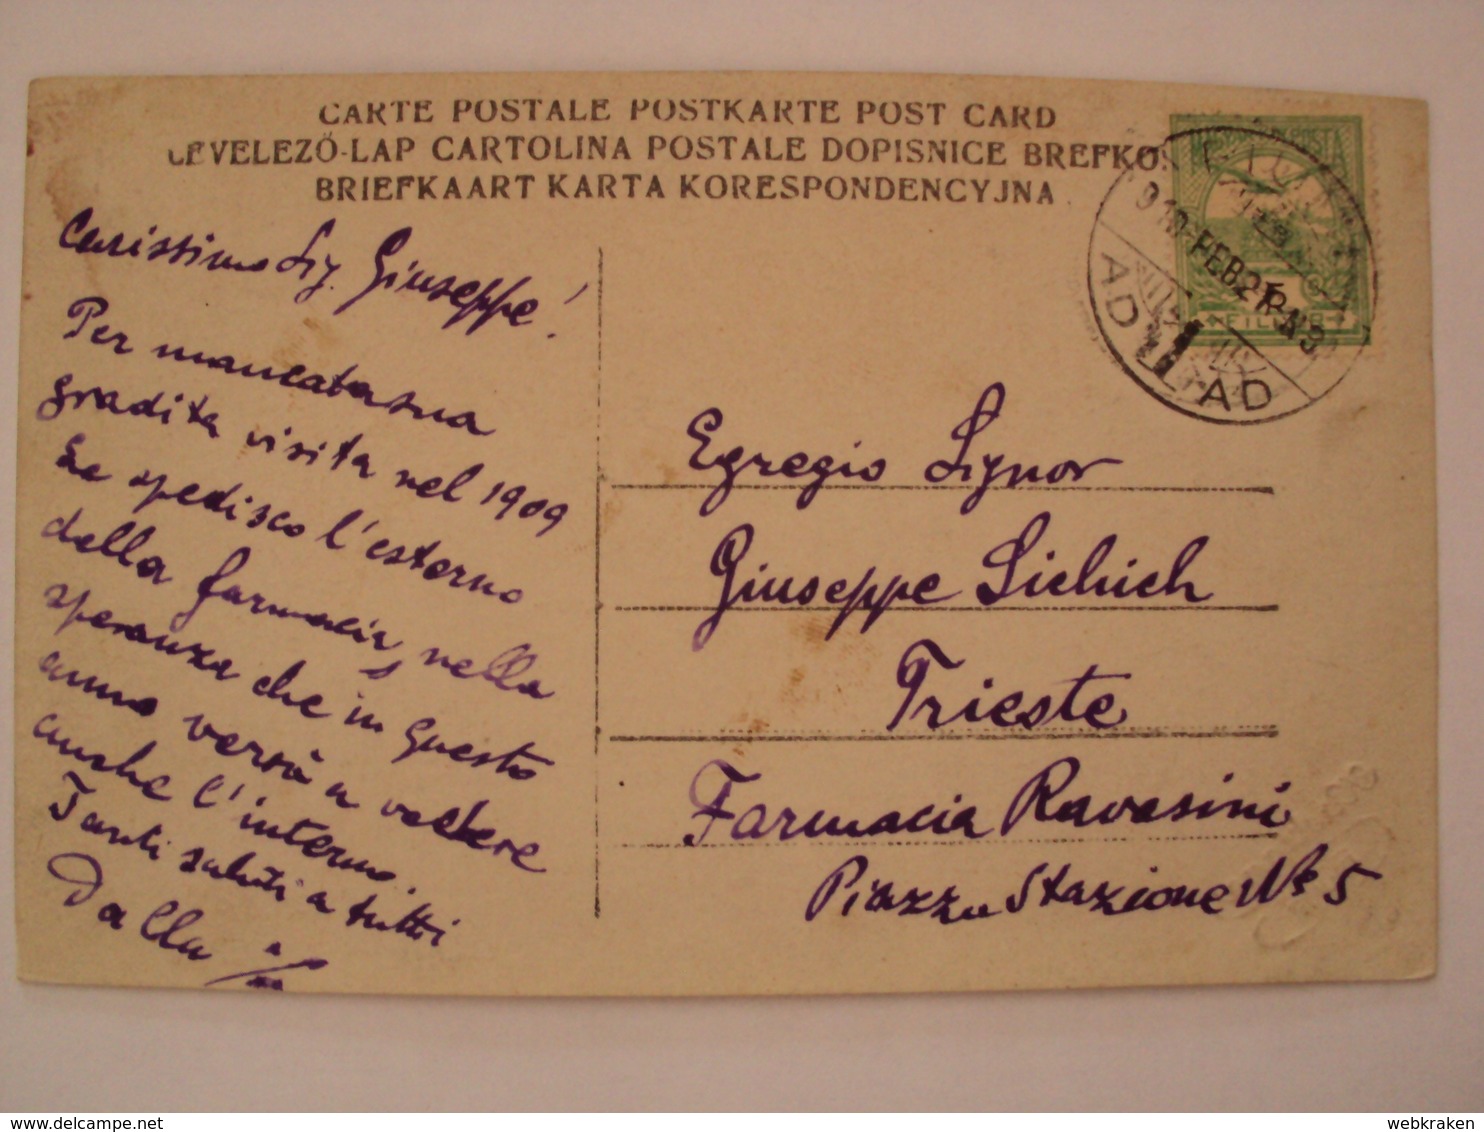 CARTE POSTALE POSTKARTE POST CARD
LEVELEZŐ-LAP CARTOLINA POSTALE DOPISNICE BREFKO
BRIEFKAART KARTA KORESPONDENCYJNA
Carissimo Sig. Giuseppe!
Per mancata sua
gradita visita nel 1909
Le spedisco l'esterno
della farmacia, nella
speranza che in questo
anno verrà a vedere
anche l'interno.
Tanti saluti a tutti
Dalla
FIUME
910 FEB 21
FILLÉR
Egregio Signor
Giuseppe Sichich
Trieste
Farmacia Ravasini
Piazza Stazione No 5
delcampe.net
webkraken